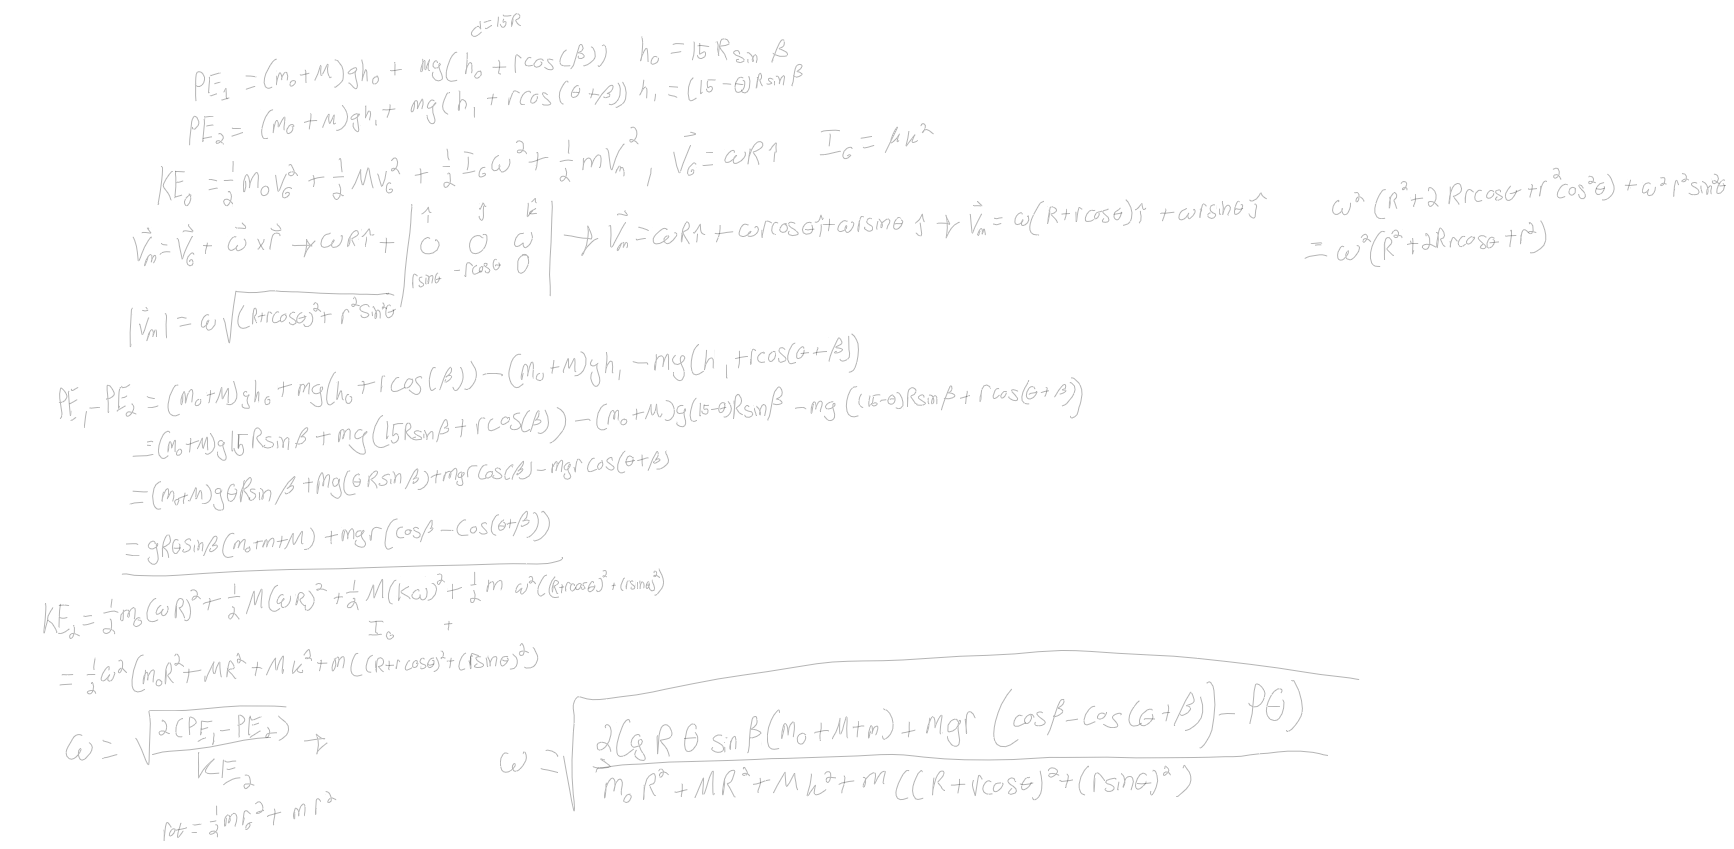 d=15R
PE₁ = (m₀+M)gh₀ + mg(h₀ + rcos(β)) h₀ = 15 R sin β
PE₂ = (m₀ + M)gh₁ + mg(h₁ + rcos(θ+β)) h₁ = (15-θ)R sin β
KE₀ = ½m₀v_G² + ½Mv_G² + ½I_Gω² + ½mV_m², V⃗_G = ωR î I_G = Mk²
V⃗_m = V⃗_G + ω⃗ × r⃗ → ωR î + | î ĵ k̂ ; 0 0 ω ; rsinθ -rcosθ 0 | → V⃗_m = ωR î + ωrcosθ î + ωrsinθ ĵ → V⃗_m = ω(R+rcosθ) î + ωrsinθ ĵ
ω²(R²+2Rrcosθ+r²cos²θ) + ω²r²sin²θ
= ω²(R²+2Rrcosθ+r²)
|v⃗_m| = ω√((R+rcosθ)² + r²sin²θ)
PE₁-PE₂ = (m₀+M)gh₀ + mg(h₀ + rcos(β)) - (m₀+M)gh₁ - mg(h₁ + rcos(θ+β))
= (m₀+M)g15Rsinβ + mg(15Rsinβ + rcos(β)) - (m₀+M)g(15-θ)Rsinβ - mg((15-θ)Rsinβ + rcos(θ+β))
= (m₀+M)gθRsinβ + mg(θRsinβ) + mgrcos(β) - mgrcos(θ+β)
= gRθsinβ(m₀+m+M) + mgr(cosβ - cos(θ+β))
KE₂ = ½m₀(ωR)² + ½M(ωR)² + ½M(kω)² + ½m ω²((R+rcosθ)² + (rsinθ)²)
I_G +
= ½ω²(m₀R² + MR² + Mk² + m((R+rcosθ)² + (rsinθ)²)
ω = √(2(PE₁-PE₂)/KE₂) →
ω = √(2(gRθ sinβ(m₀+M+m) + mgr(cosβ-cos(θ+β)) - Pθ)/(m₀R² + MR² + Mk² + m((R+rcosθ)² + (rsinθ)²))
rot = ½mr₀² + mr²